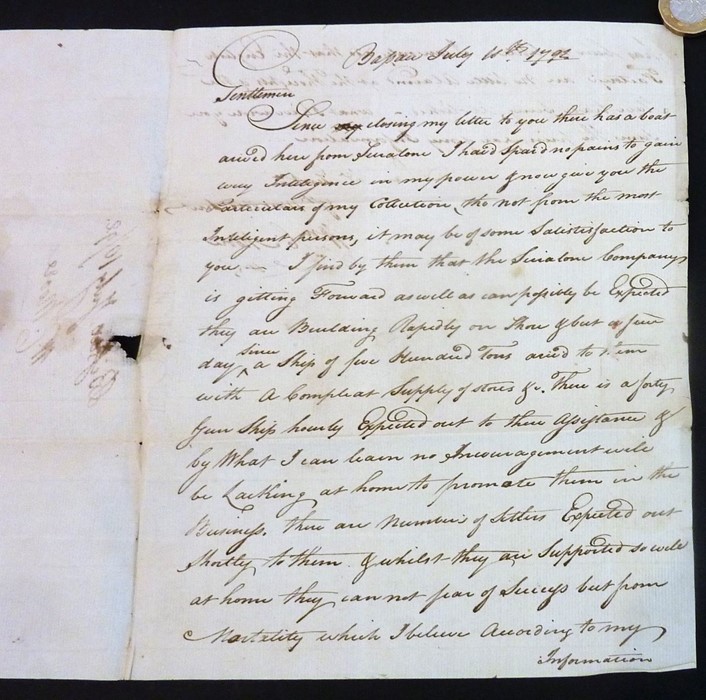 Bassau July 11th 1792
Gentlemen
Since my closing my letter to you there has a boat
arived here from Siralone I haid Spaird no pains to gain
every Inteligence in my power & now give you the
Particulars of my Collection, tho not from the most
Inteligent persons, it may be of some Satisfaction to
you. I find by them that the Siralone Companys
is gitting Forward as well as can possibly be Expected
they are Building Rapidly on Shore & but a few
day since a Ship of five Hundred Tons arived to them
with A Compleat Supply of stores &c. There is a forty
Gun Ship hourly Expected out to there Assistance &
by What I can learn no Incouragement will
be Lacking at home to promote them in the
Business. there are Number of Setlers Expected out
Shortly to them & whilst they are Supported so well
at home they can not fear of Success but from
Mortality which I believe According to my
Information